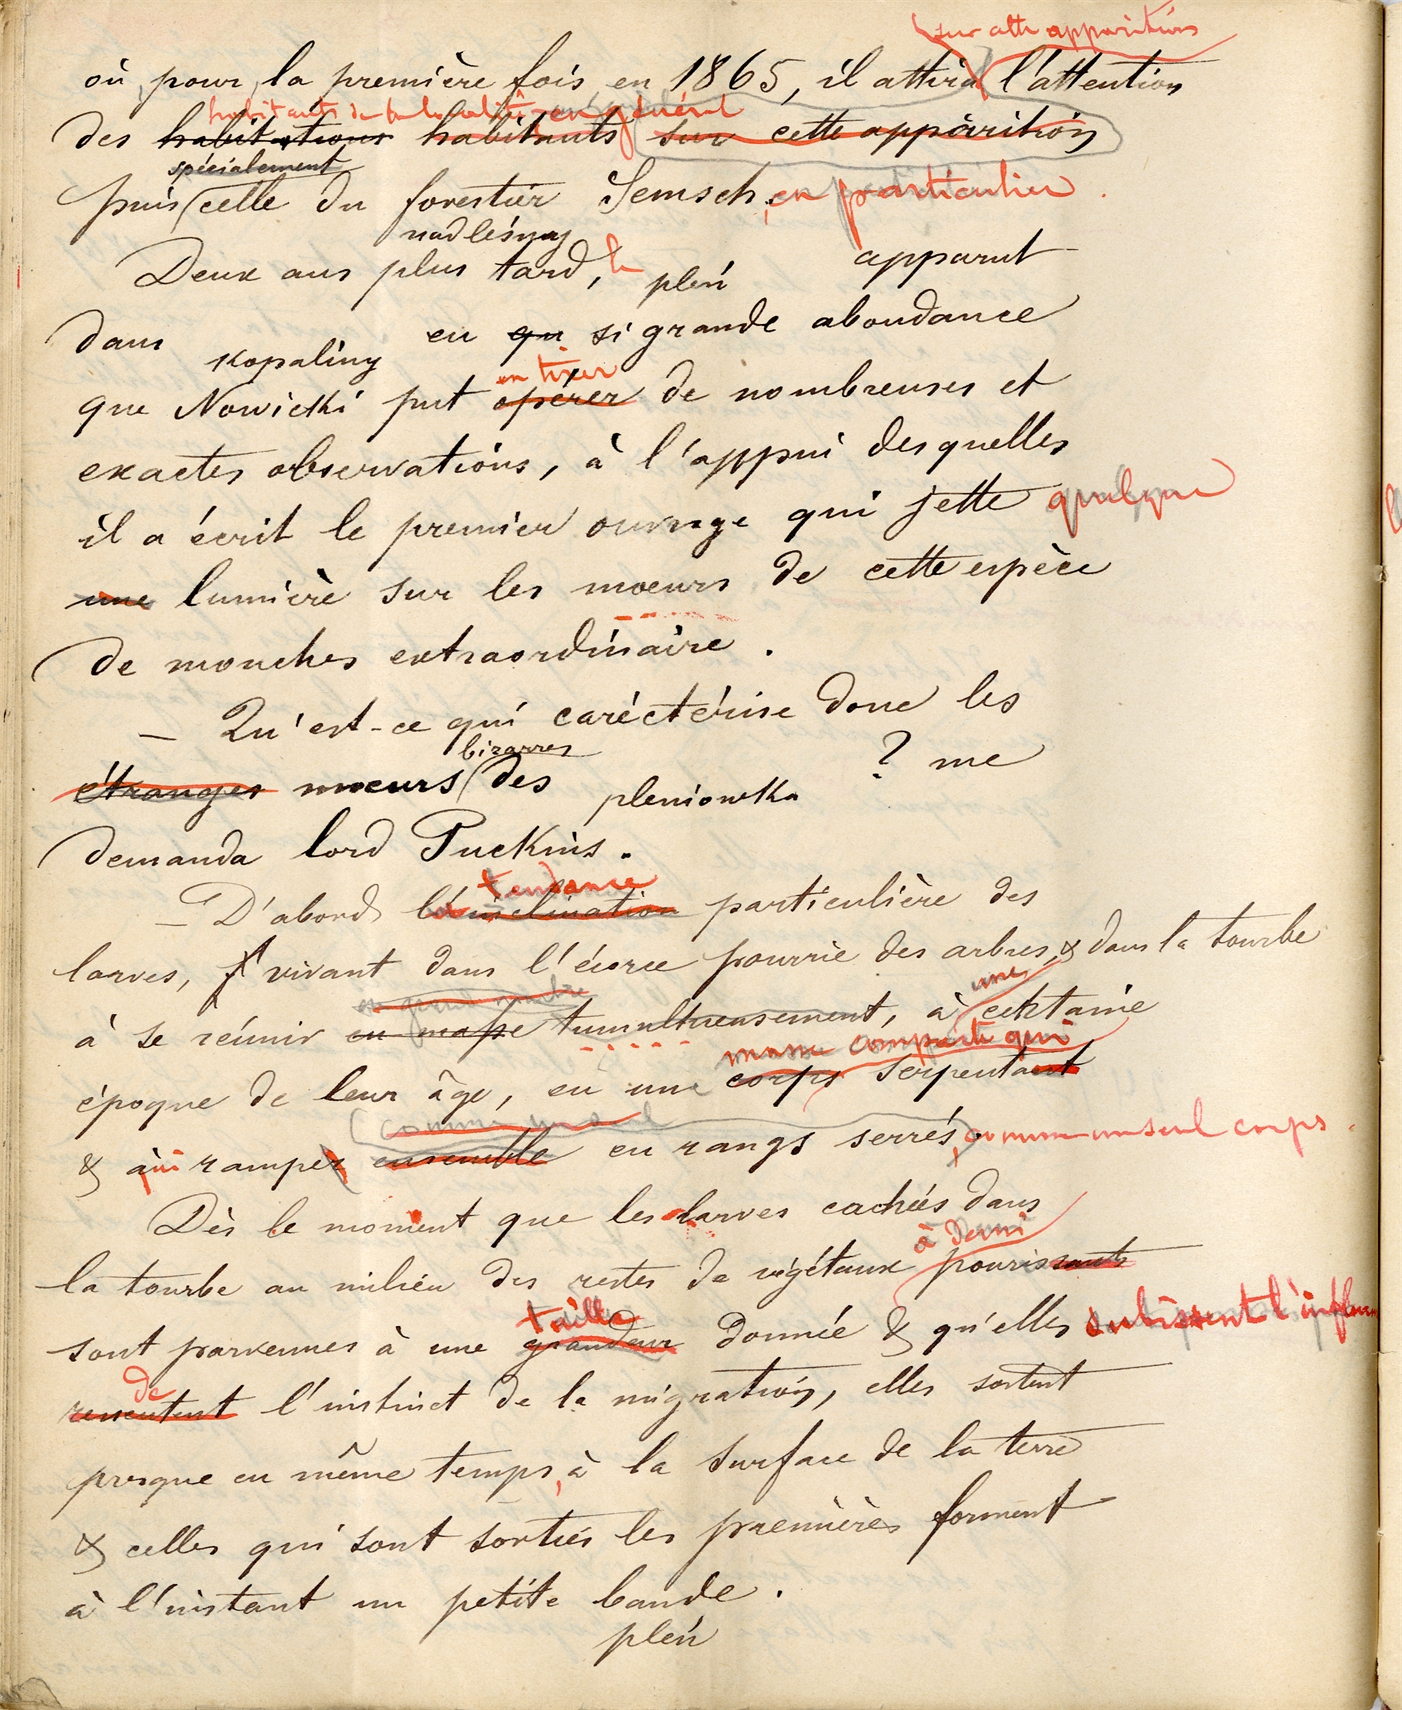 sur cette apparition
où, pour la première fois, en 1865, il attira l'attention
habitants de la localité en général
des habitations habitants sur cette apparition
spécialement
puis celle du forestier Semsch, en particulier.
nadleśny
Deux ans plus tard, le pleń apparut
dans kopaliny en qu si grande abondance
en tirer
que Nowicki put opérer de nombreuses et
exactes observations, à l'appui desquelles
il a écrit le premier ouvrage qui jette quelque
une lumière sur les moeurs de cette espèce
de mouches extraordinaire.
— Qu'est-ce qui caréctérise donc les
bizarres
étranges moeurs des pleniowka ? me
demanda lord Puckins.
tendance
— D'abord l'inclination particulière des
larves, vivant dans l'écorce pourrie des arbres, & dans la tourbe
en grand nombre
une
à se réunir en masse tumultueusement, à certaine
masse compacte qui
époque de leur âge, en une corps serpentant
comme un seul
& qui ramper ensemble en rangs serrés, comme un seul corps.
Dès le moment que les larves cachées dans
à demi
la tourbe au milieu des restes de végétaux pourissants
taille
sont parvenues à une grandeur donnée & qu'elles subissent l'influen
de
ressentent l'instinct de la migration, elles sortent
presque en même temps, à la surface de la terre
& celles qui sont sorties les premières forment
à l'instant un petite bande.
pleń